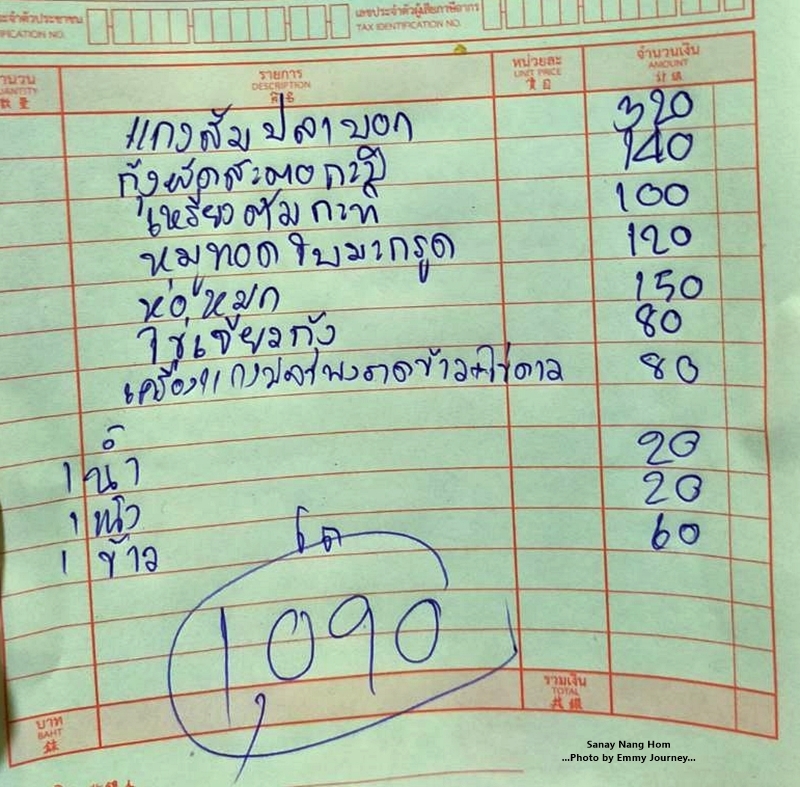 ระจำตัวประชาชน เลขประจำตัวผู้เสียภาษีอากร
IFICATION NO. TAX IDENTIFICATION NO.
ำนวน รายการ หน่วยละ จำนวนเงิน
UANTITY DESCRIPTION UNIT PRICE AMOUNT
數量
แกงส้มปลาบอก 320
กุ้งผัดสะตอกะปิ 140
เหรียงต้มกะทิ 100
หมูทอดใบมะกรูด 120
ห่อหมก 150
ไข่เจียวกุ้ง 80
เครื่องแกงปลาพงราดข้าว+ไข่ดาว 80
1 น้ำ 20
1 แข็ง 20
1 ข้าว 60
โต
1,090
บาท รวมเงิน
BAHT TOTAL
銖 共銀
Sanay Nang Hom
...Photo by Emmy Journey...